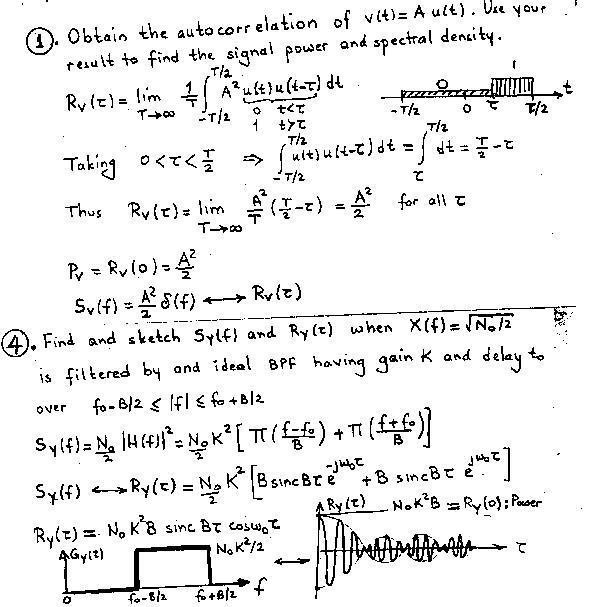 ①. Obtain the autocorrelation of v(t)= A u(t). Use your
result to find the signal power and spectral density.
Rv(τ) = lim T→∞ 1/T ∫_{-T/2}^{T/2} A² u(t)u(t-τ) dt
0 t<τ
1 t>τ
0 1
-T/2 0 τ T/2 t
Taking 0<τ<T/2 ⇒ ∫_{-T/2}^{T/2} u(t)u(t-τ)dt = ∫_{τ}^{T/2} dt = T/2 - τ
Thus Rv(τ) = lim T→∞ A²/T (T/2 - τ) = A²/2 for all τ
Pv = Rv(0) = A²/2
Sv(f) = A²/2 δ(f) ↔ Rv(τ)
④. Find and sketch Sy(f) and Ry(τ) when X(f) = √N₀/2
is filtered by and ideal BPF having gain K and delay to
over f₀-B/2 ≤ |f| ≤ f₀+B/2
Sy(f) = N₀/2 |H(f)|² = N₀/2 K² [Π((f-f₀)/B) + Π((f+f₀)/B)]
Sy(f) ↔ Ry(τ) = N₀/2 K² [B sinc Bτ e^{-jω₀τ} + B sinc Bτ e^{jω₀τ}]
Ry(τ) = N₀K²B sinc Bτ cosω₀τ
Ry(τ) N₀K²B = Ry(0): Power
Gy(f) N₀K²/2 ↔ τ
0 f₀-B/2 f₀+B/2 f